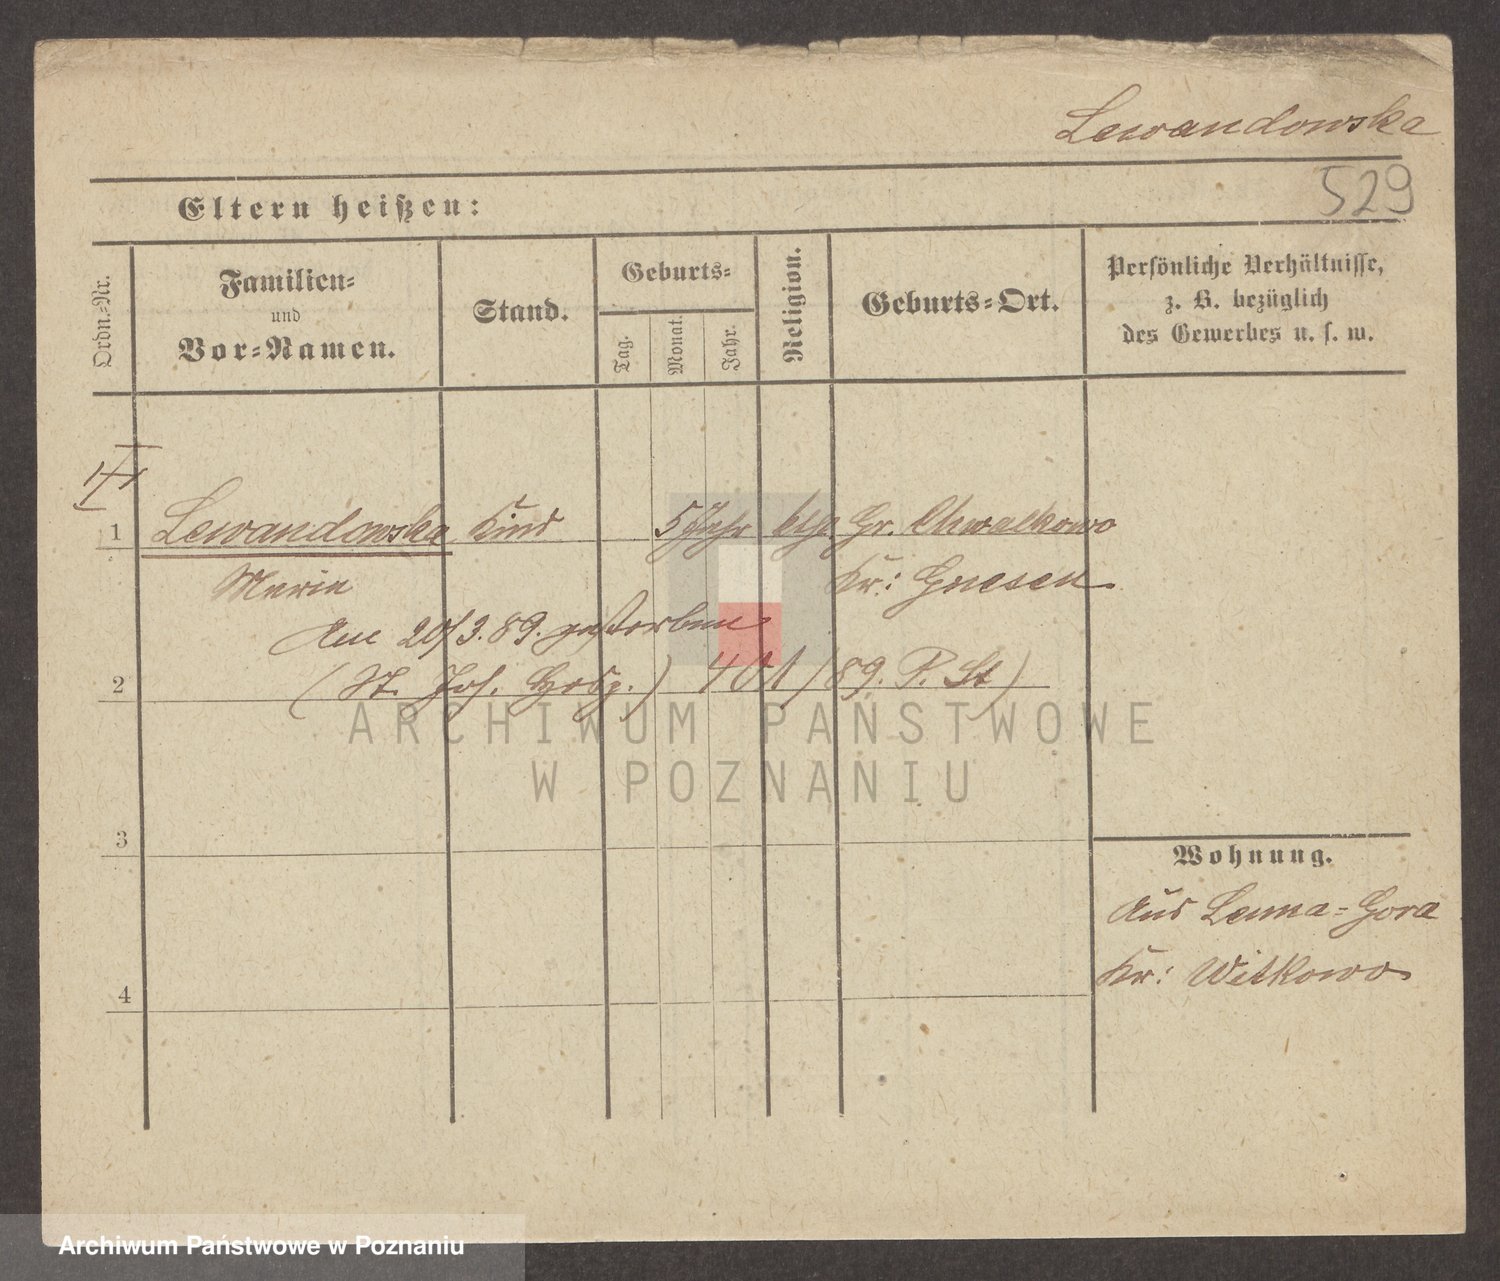 Lewandowska
529
Eltern heißen:
Ordn.-Nr.
Familien-
und
Vor-Namen.
Stand.
Geburts-
Tag.
Monat.
Jahr.
Religion.
Geburts-Ort.
Persönliche Verhältnisse,
z. B. bezüglich
des Gewerbes u. s. w.
1 Lewandowska Kind 5 Jahr kth. Gr. Chwalkowo
Maria Kr: Gnesen
Am 20/3.89. gestorben
2 (St. Jos. Hosp.) 401/89. P. St)
ARCHIWUM PAŃSTWOWE
W POZNANIU
3
Wohnung.
Aus Lenna-Gora
4 Kr: Witkowo
Archiwum Państwowe w Poznaniu